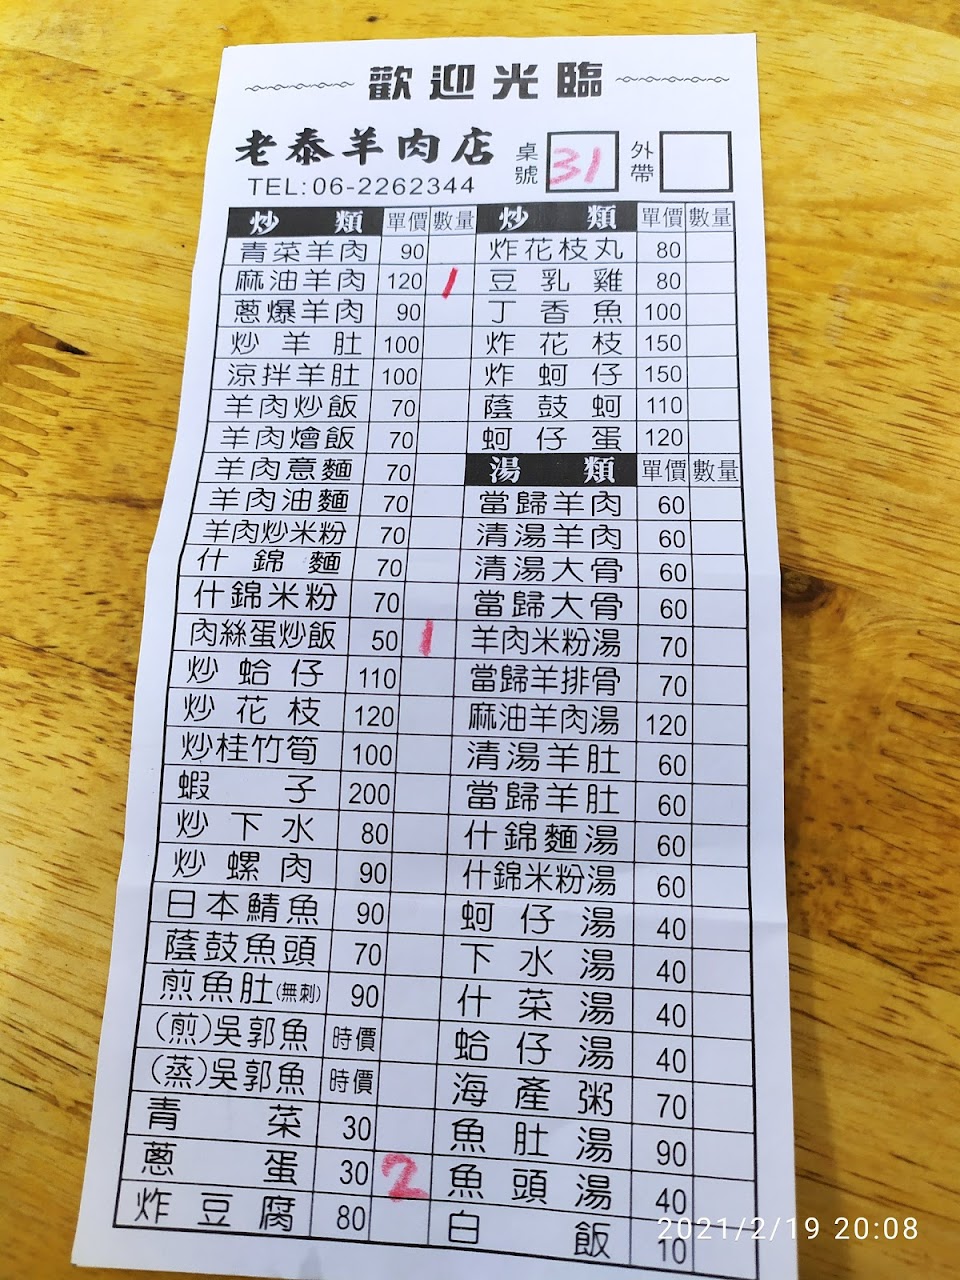 歡迎光臨
老泰羊肉店
桌號 31 外帶
TEL:06-2262344
炒類 單價 數量
青菜羊肉 90
麻油羊肉 120 1
蔥爆羊肉 90
炒羊肚 100
涼拌羊肚 100
羊肉炒飯 70
羊肉燴飯 70
羊肉意麵 70
羊肉油麵 70
羊肉炒米粉 70
什錦麵 70
什錦米粉 70
肉絲蛋炒飯 50 1
炒蛤仔 110
炒花枝 120
炒桂竹筍 100
蝦子 200
炒下水 80
炒螺肉 90
日本鯖魚 90
蔭鼓魚頭 70
煎魚肚(無刺) 90
(煎)吳郭魚 時價
(蒸)吳郭魚 時價
青菜 30
蔥蛋 30 2
炸豆腐 80
炒類 單價 數量
炸花枝丸 80
豆乳雞 80
丁香魚 100
炸花枝 150
炸蚵仔 150
蔭鼓蚵 110
蚵仔蛋 120
湯類 單價 數量
當歸羊肉 60
清湯羊肉 60
清湯大骨 60
當歸大骨 60
羊肉米粉湯 70
當歸羊排骨 70
麻油羊肉湯 120
清湯羊肚 60
當歸羊肚 60
什錦麵湯 60
什錦米粉湯 60
蚵仔湯 40
下水湯 40
什菜湯 40
蛤仔湯 40
海產粥 70
魚肚湯 90
魚頭湯 40
白飯 10
2021/2/19 20:08